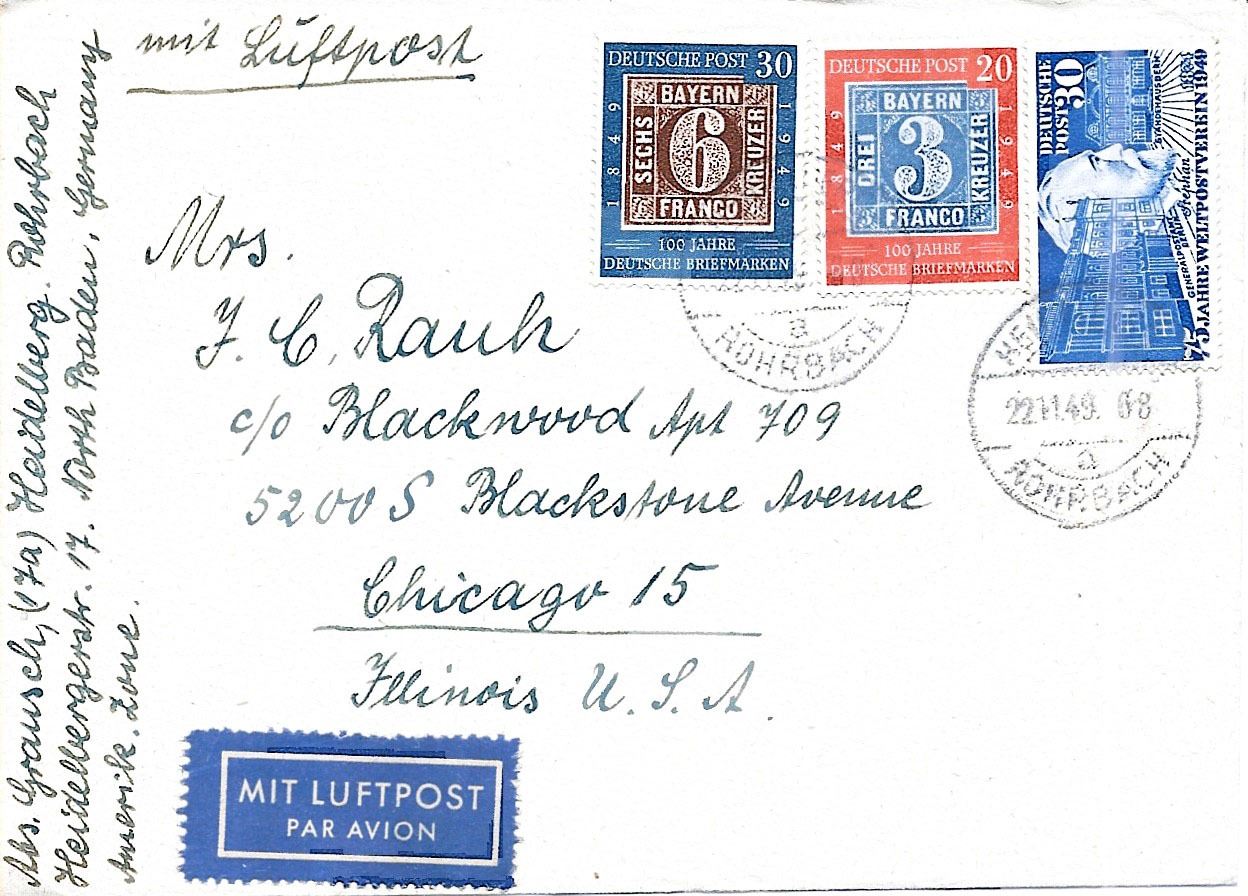 mit Luftpost
DEUTSCHE POST 30
BAYERN
SECHS
6
KREUZER
FRANCO
1849
1949
100 JAHRE
DEUTSCHE BRIEFMARKEN
DEUTSCHE POST 20
BAYERN
DREI
3
KREUZER
FRANCO
1849
1949
100 JAHRE
DEUTSCHE BRIEFMARKEN
DEUTSCHE
POST 30
STÄNDEHAUS BERN
GENERALPOSTAMT
BERLIN
Stephan
75 JAHRE WELTPOSTVEREIN 1949
a
ROHRBACH
22.11.49. 68
a
ROHRBACH
Mrs.
J. C. Rauh
c/o Blackwood Apt 709
5200 S Blackstone Avenue
Chicago 15
Illinois U. S. A.
MIT LUFTPOST
PAR AVION
Abs. Grausch, (17a) Heidelberg. Rohrbach
Heidelbergerstr. 17. North Baden, Germany
Amerik. Zone.